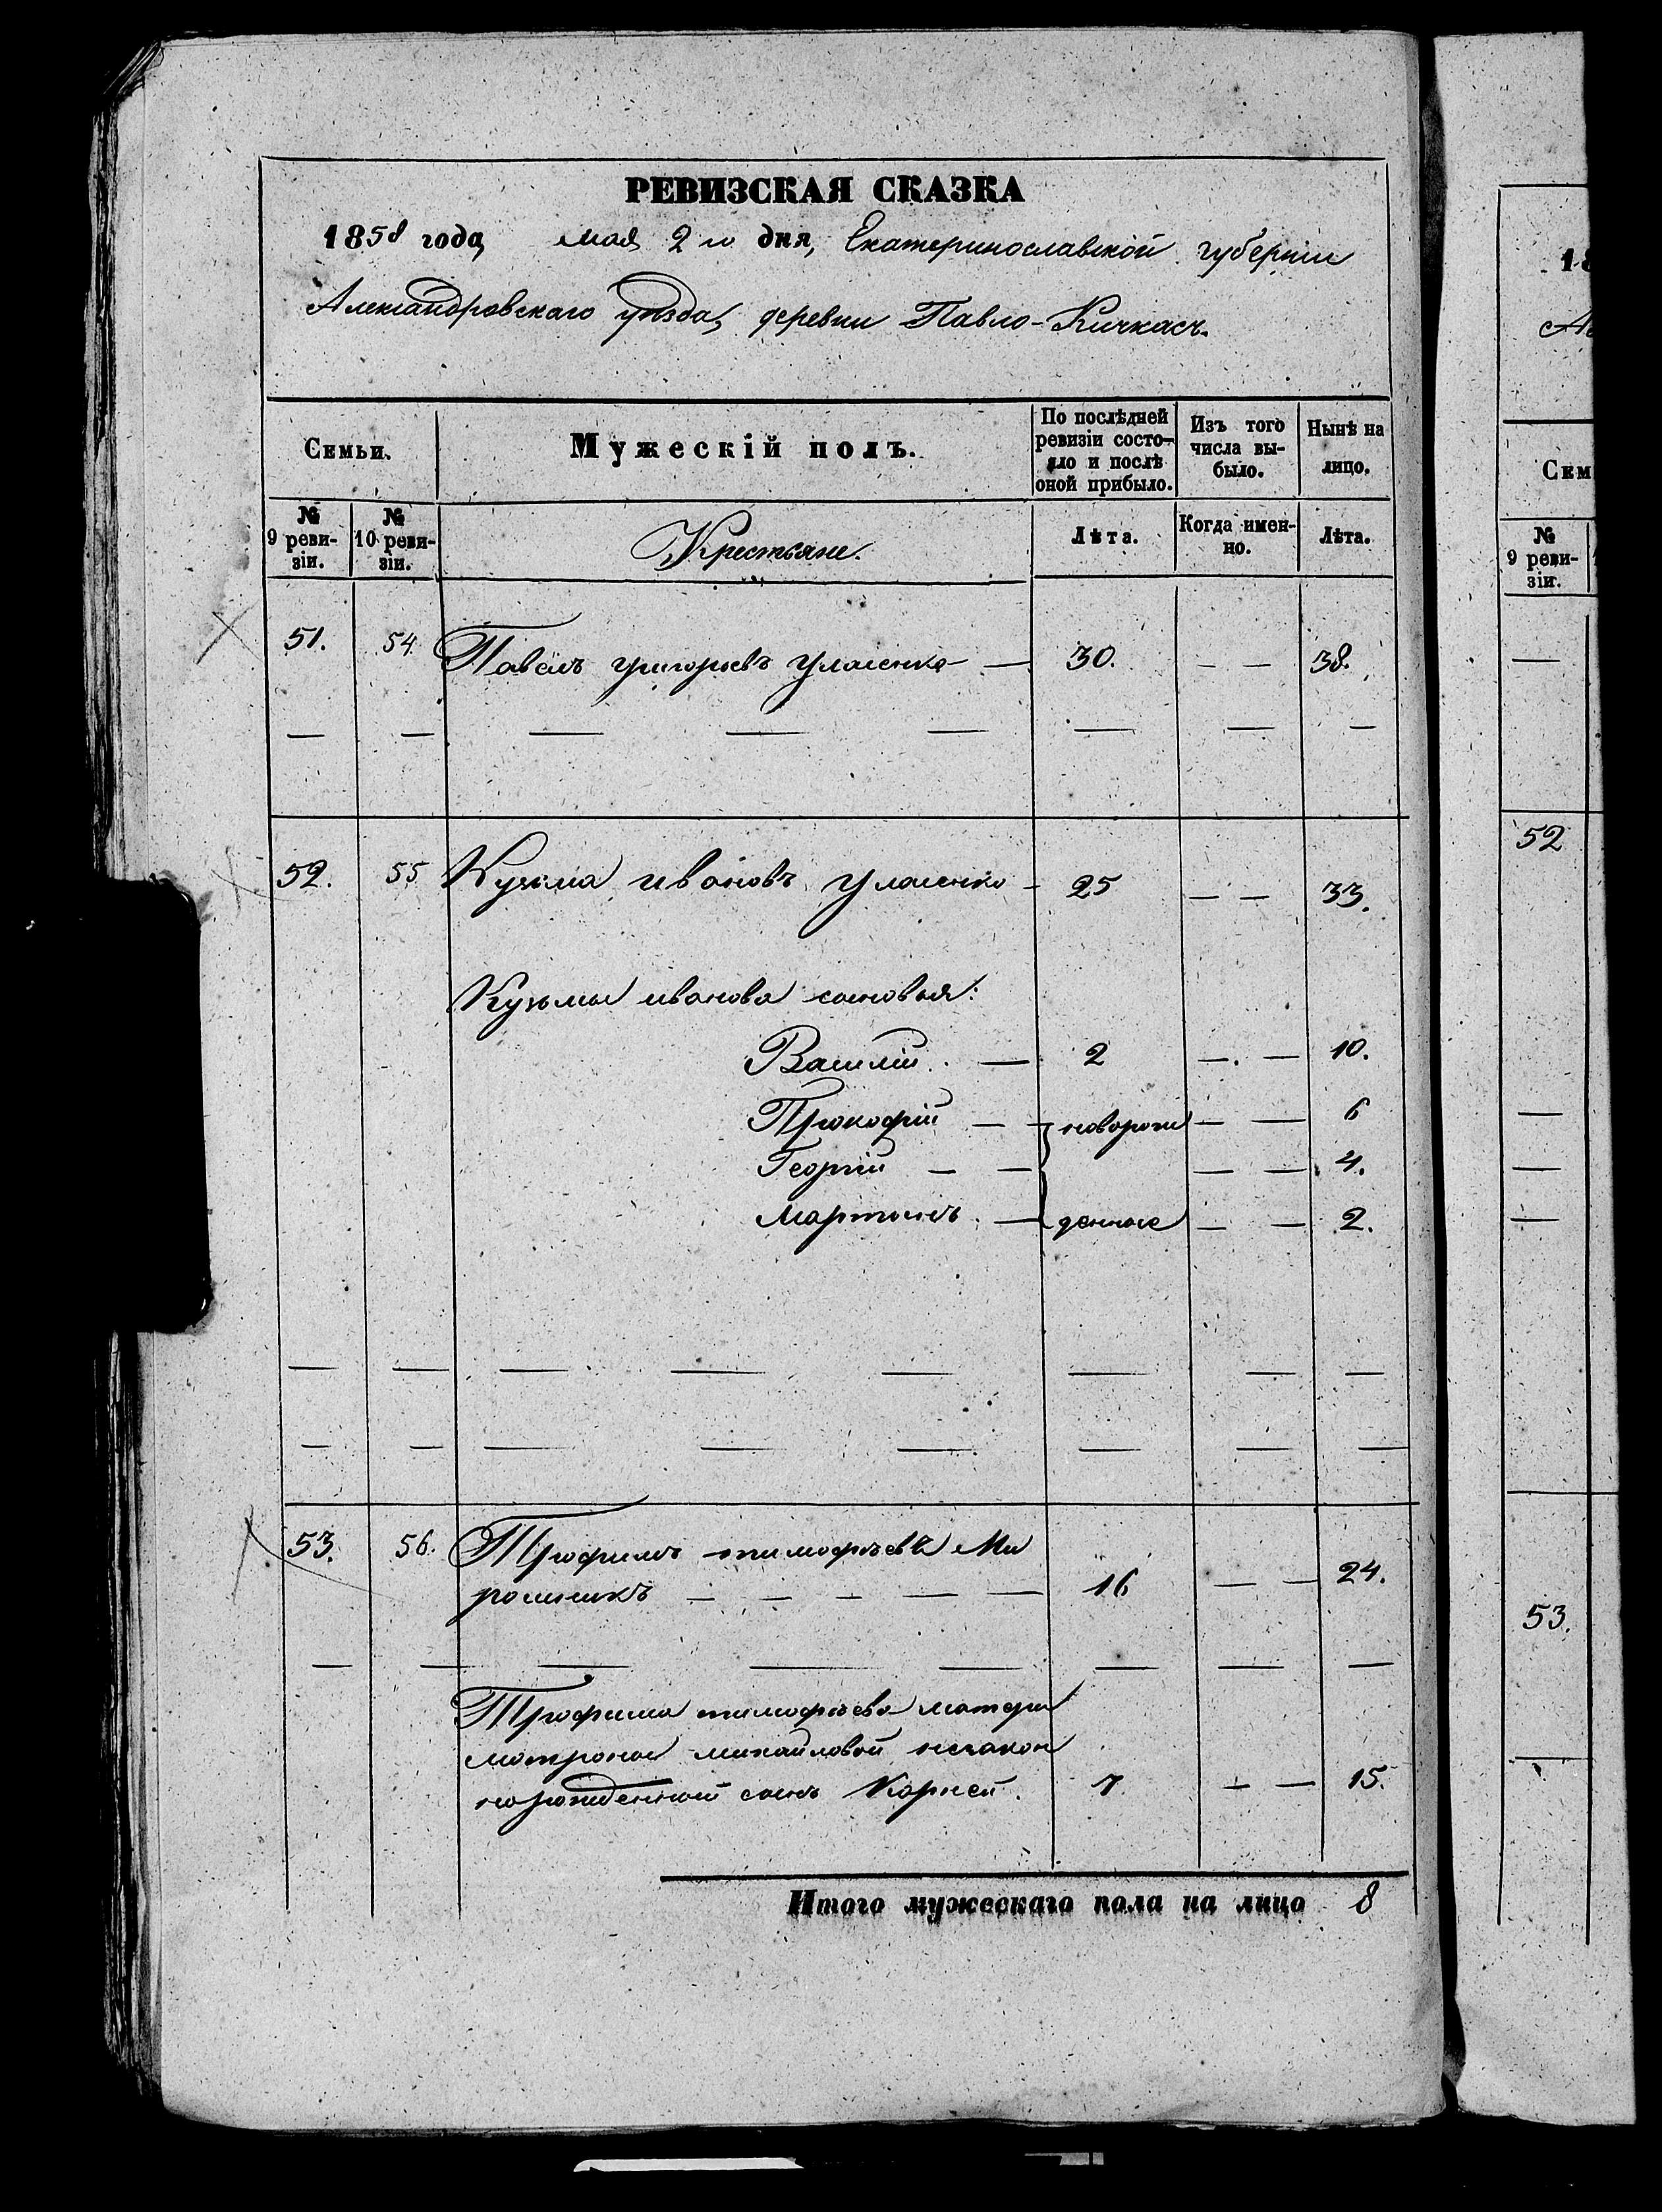 РЕВИЗСКАЯ СКАЗКА
1858 года, мая 2 го дня, Екатеринославской губерніи
Александровскаго уѣзда, деревни Павло-Кичкасъ.
Семьи.
Мужескій полъ.
По послѣдней ревизіи состо-
яло и послѣ
оной прибыло.
Изъ того
числа вы-
было.
Нынѣ на
лицо.
№
9 реви-
зіи.
№
10 реви-
зіи.
Крестьяне.
Лѣта.
Когда имен-
но.
Лѣта.
51. 54 Павелъ григорьевъ — 30. — — 38.
52. 55 Кузьма ивановъ - 25 — — 33.
Кузьмы иванова сыновья:
Василій — 2 — — 10.
Прокофій — — новорож — — 6
Георгій — — — — 4.
Мартынъ — денные — — 2.
53. 56. Трофимъ тимофѣевъ Ми
рошникъ — — — — — 16 — — 24.
Трофима тимофѣева матери
матроны михайловой незакон
норожденный сынъ Корней. 7 — — 15.
Итого мужескаго пола на лицо 8
18
Ал
Сем
№
9 реви-
зіи.
52
53.